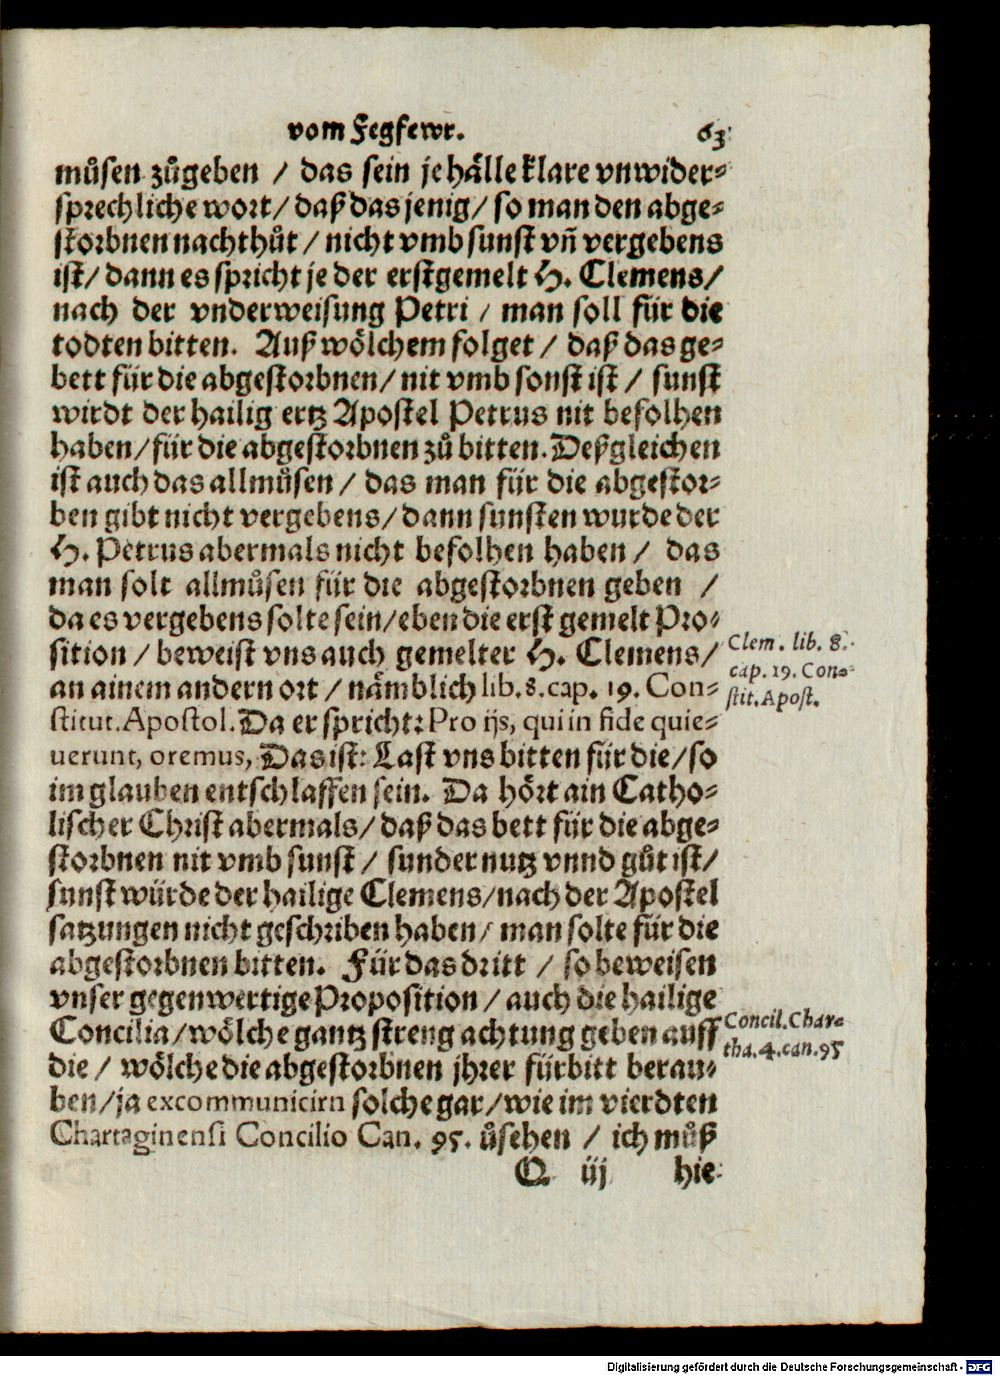 vom Fegfewr. 63
müsen zůgeben / das sein je hälle klare vnwider-
sprechliche wort / daß das jenig / so man den abge-
storbnen nachthůt / nicht vmb sunst vñ vergebens
ist / dann es spricht je der erstgemelt H. Clemens /
nach der vnderweisung Petri / man soll für die
todten bitten. Auß wölchem folget / daß das ge-
bett für die abgestorbnen / nit vmb sonst ist / sunst
wirdt der hailig ertz Apostel Petrus nit befolhen
haben / für die abgestorbnen zů bitten. Deßgleichen
ist auch das allmůsen / das man für die abgestor-
ben gibt nicht vergebens / dann sunsten wurde der
H. Petrus abermals nicht befolhen haben / das
man solt allmůsen für die abgestorbnen geben /
da es vergebens solte sein / eben die erst gemelt Pro-
sition / beweist vns auch gemelter H. Clemens /
an ainem andern ort / nämblich lib. 8. cap. 19. Con-
stitut. Apostol. Da er spricht: Pro ijs, qui in fide quie-
uerunt, oremus, Das ist: Last vns bitten für die / so
im glauben entschlaffen sein. Da hört ain Catho-
lischer Christ abermals / daß das bett für die abge-
storbnen nit vmb sunst / sunder nutz vnnd gůt ist /
sunst würde der hailige Clemens / nach der Apostel
satzungen nicht geschriben haben / man solte für die
abgestorbnen bitten. Für das dritt / so beweisen
vnser gegenwertige Proposition / auch die hailige
Concilia / wölche gantz streng achtung geben auff
die / wölche die abgestorbnen jhrer fürbitt berau-
ben / ja excommunicirn solche gar / wie im vierdten
Chartaginensi Concilio Can. 95. ůsehen / ich můß
Q iij hie-
Clem. lib. 8.
cap. 19. Con-
stit. Apost.
Concil. Char-
tha. 4. can. 95
Digitalisierung gefördert durch die Deutsche Forschungsgemeinschaft - DFG